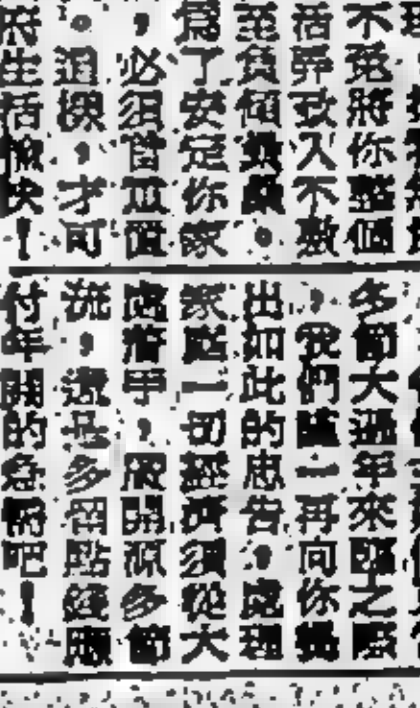 不免將你整個
活弄致入不敷
至負債纍纍。
為了安定你家
，必須
。這樣，才可
府生活愉快！
多節大過年來臨之際
，我們 一再向你
出如此的忠告，處理
家 一切經濟須從大
處着手， 開源多節
流，還是多留點錢應
付年關的急需吧！